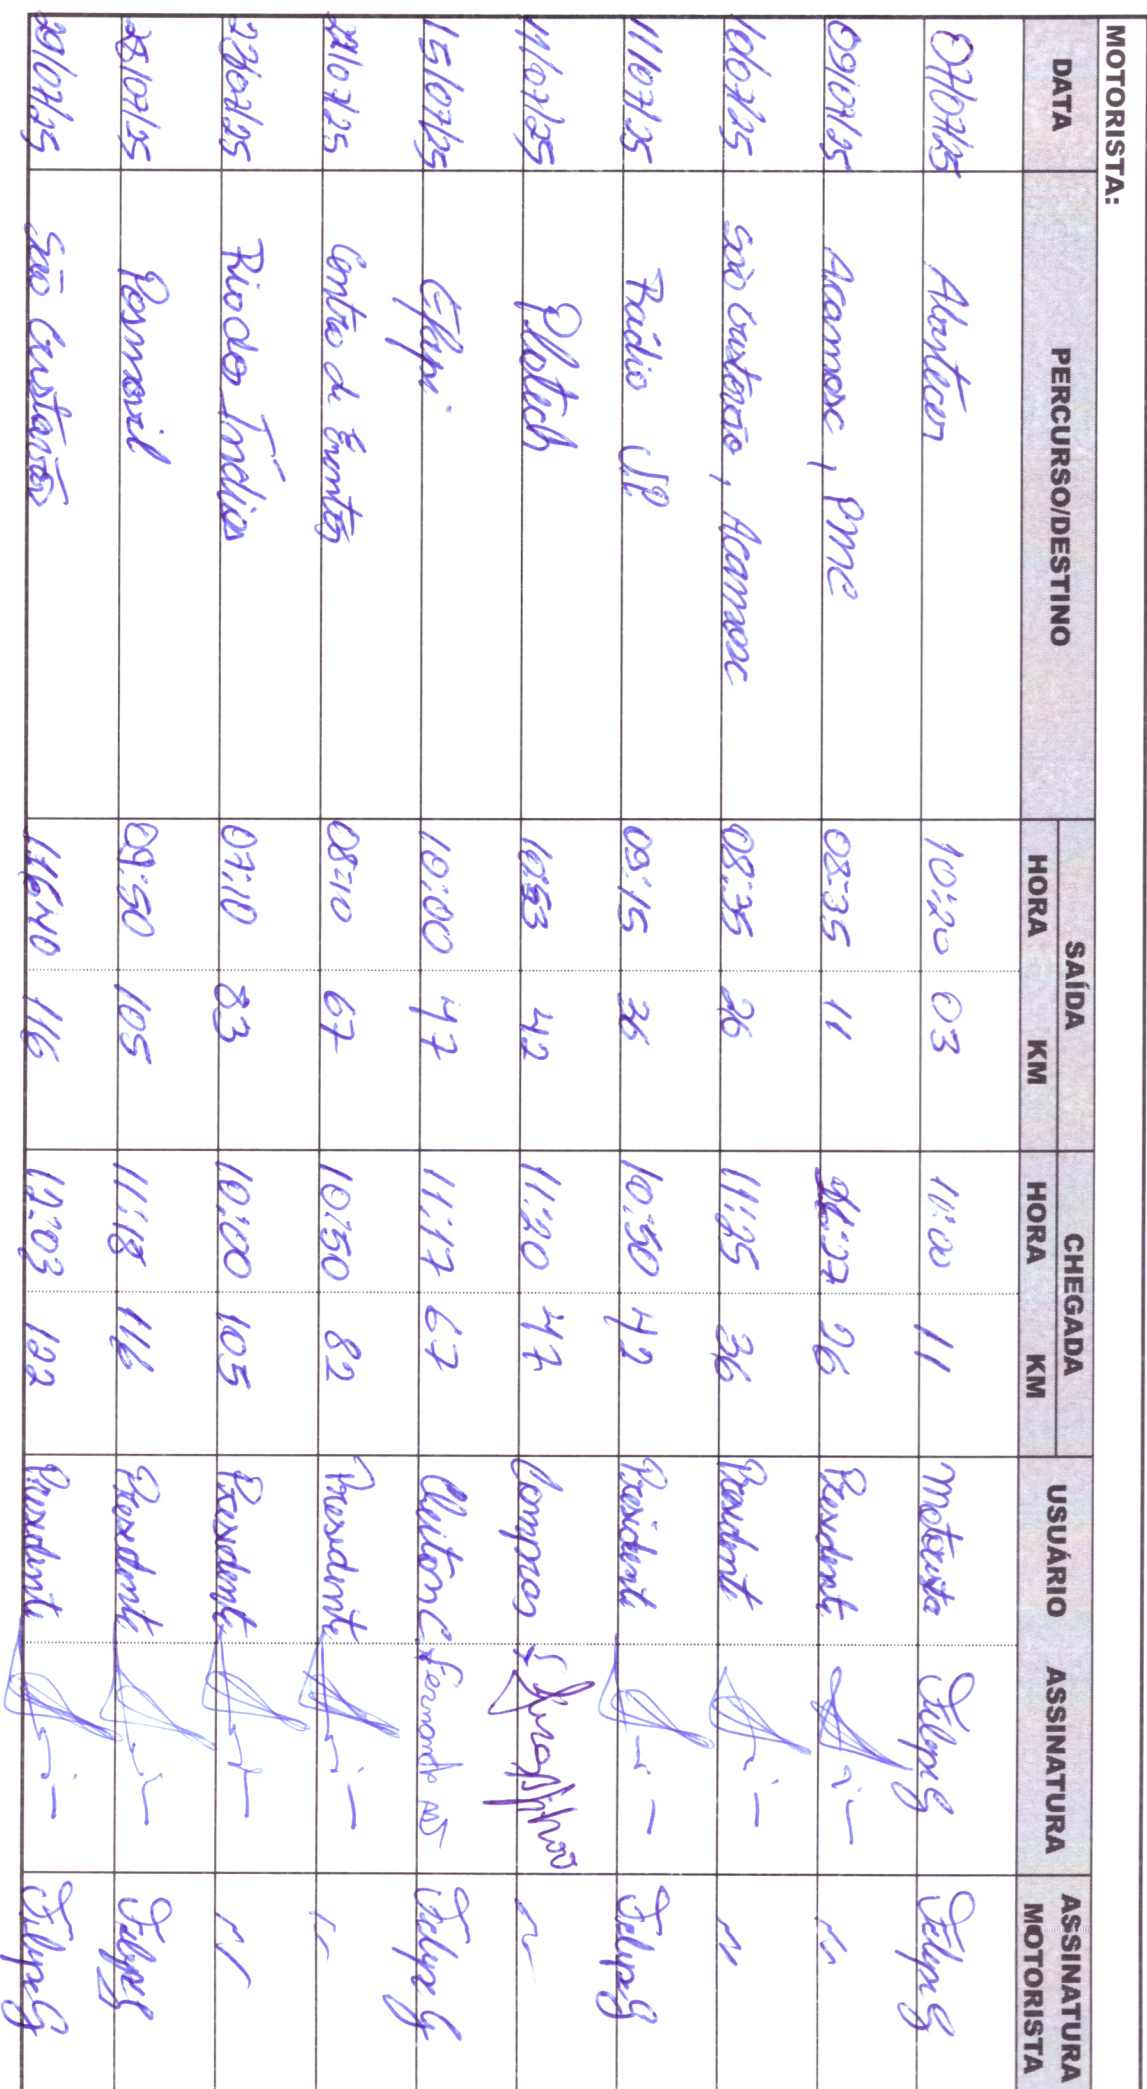 MOTORISTA:
DATA PERCURSO/DESTINO SAÍDA CHEGADA USUÁRIO ASSINATURA ASSINATURA MOTORISTA
HORA KM HORA KM
07/07/25 Abastecer 10:20 03 11:00 11 Motorista Felipe G Felipe G
09/07/25 Acamosc, PMC 08:35 11 26 Presidente "
10/07/25 São Cristóvão, Acamosc 08:35 26 11:25 36 Presidente "
11/07/25 Rádio 09:15 36 10:50 42 Presidente Felipe G
11/07/25 Plotech 10:53 42 11:20 47 Compras "
15/07/25 Efapi 10:00 47 11:17 67 Cleiton C Fernando Felipe G
/07/25 Centro de Eventos 08:10 67 10:50 82 Presidente "
23/07/25 Rio dos Índios 07:10 83 10:00 105 Presidente "
28/07/25 09:50 105 11:18 116 Presidente Felipe G
/07/25 São Cristóvão 116 12:03 122 Presidente Felipe G